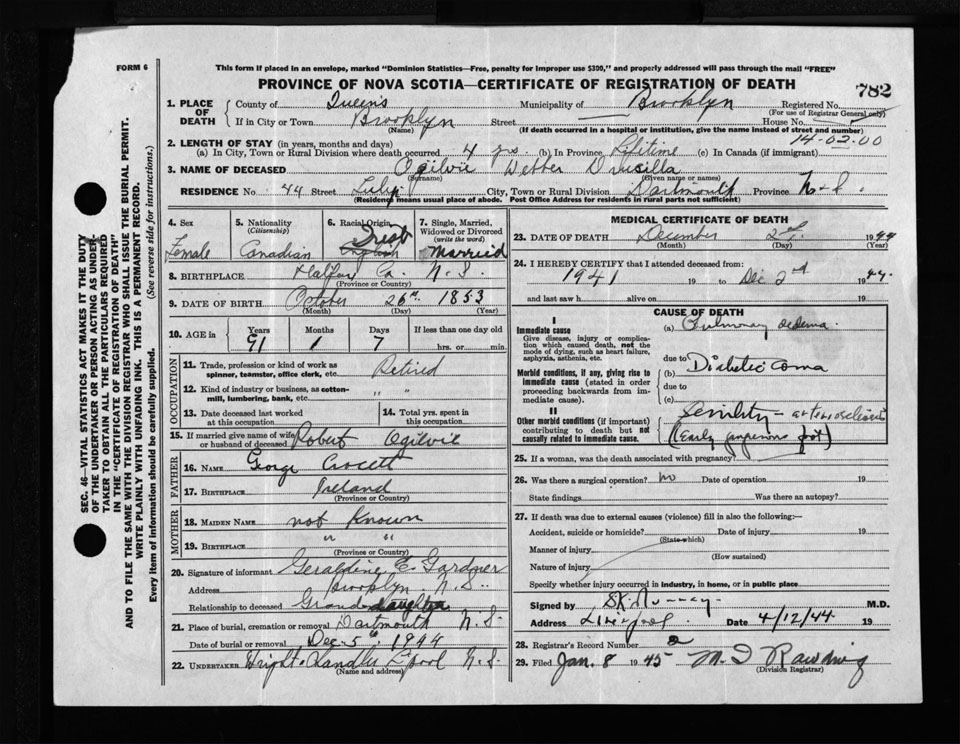 FORM 6
This form if placed in an envelope, marked "Dominion Statistics—Free, penalty for improper use $300," and properly addressed will pass through the mail "FREE"
PROVINCE OF NOVA SCOTIA—CERTIFICATE OF REGISTRATION OF DEATH
782
1. PLACE OF DEATH County of Queens Municipality of Brooklyn Registered No.
(For use of Registrar General only)
If in City or Town Brooklyn Street House No.
(Name) (If death occurred in a hospital or institution, give the name instead of street and number)
14-02-00
2. LENGTH OF STAY (in years, months and days)
(a) In City, Town or Rural Division where death occurred 4 yrs (b) In Province Lifetime (c) In Canada (if immigrant)
3. NAME OF DECEASED Ogilvie Webber Drusilla
(Surname) (Given name or names)
RESIDENCE No. 44 Street Tulip City, Town or Rural Division Dartmouth Province N.S.
(Residence means usual place of abode. Post Office Address for residents in rural parts not sufficient)
4. Sex Female
5. Nationality (Citizenship) Canadian
6. Racial Origin Irish English
7. Single, Married, Widowed or Divorced (write the word) Married
8. BIRTHPLACE Halifax Co. N.S.
(Province or Country)
9. DATE OF BIRTH October 26th 1853
(Month) (Day) (Year)
10. AGE in Years Months Days If less than one day old
91 1 7 hrs. or min.
OCCUPATION
11. Trade, profession or kind of work as spinner, teamster, office clerk, etc. Retired
12. Kind of industry or business, as cotton-mill, lumbering, bank, etc. "
13. Date deceased last worked at this occupation
14. Total yrs. spent in this occupation
15. If married give name of wife or husband of deceased Robert Ogilvie
FATHER
16. NAME George Crocett
17. BIRTHPLACE Ireland
(Province or Country)
MOTHER
18. MAIDEN NAME not Known
19. BIRTHPLACE " "
(Province or Country)
20. Signature of informant Geraldine E. Gardner
Address Brooklyn N.S.
Relationship to deceased Granddaughter
21. Place of burial, cremation or removal Dartmouth N.S.
Date of burial or removal Dec 5th 1944
22. UNDERTAKER Wright & Chandler L'pool N.S.
(Name and address)
MEDICAL CERTIFICATE OF DEATH
23. DATE OF DEATH December 2nd 1944
(Month) (Day) (Year)
24. I HEREBY CERTIFY that I attended deceased from:
1941 19 to Dec 2nd 1944
and last saw h alive on 19
CAUSE OF DEATH
I
Immediate cause
Give disease, injury or complication which caused death, not the mode of dying, such as heart failure, asphyxia, asthenia, etc.
(a) Pulmonary oedema
due to
Morbid conditions, if any, giving rise to immediate cause (stated in order proceeding backwards from immediate cause).
(b) Diabetic coma
due to
(c)
II
Other morbid conditions (if important) contributing to death but not causally related to immediate cause.
Senility - arteriosclerosis
(Early gangrenous foot)
25. If a woman, was the death associated with pregnancy?
26. Was there a surgical operation? no Date of operation 19
State findings Was there an autopsy?
27. If death was due to external causes (violence) fill in also the following:—
Accident, suicide or homicide? Date of injury 19
(State which)
Manner of injury
(How sustained)
Nature of injury
Specify whether injury occurred in industry, in home, or in public place
Signed by M.D.
Address Liverpool Date 4/12/44 19
28. Registrar's Record Number 2
29. Filed Jan. 8 1945 Rawding
(Division Registrar)
SEC. 46—VITAL STATISTICS ACT MAKES IT THE DUTY OF THE UNDERTAKER OR PERSON ACTING AS UNDERTAKER TO OBTAIN ALL THE PARTICULARS REQUIRED IN THE "CERTIFICATE OF REGISTRATION OF DEATH" AND TO FILE THE SAME WITH THE DIVISION REGISTRAR WHO SHALL ISSUE THE BURIAL PERMIT.
WRITE PLAINLY WITH UNFADING INK. THIS IS A PERMANENT RECORD.
Every item of information should be carefully supplied. (See reverse side for instructions.)